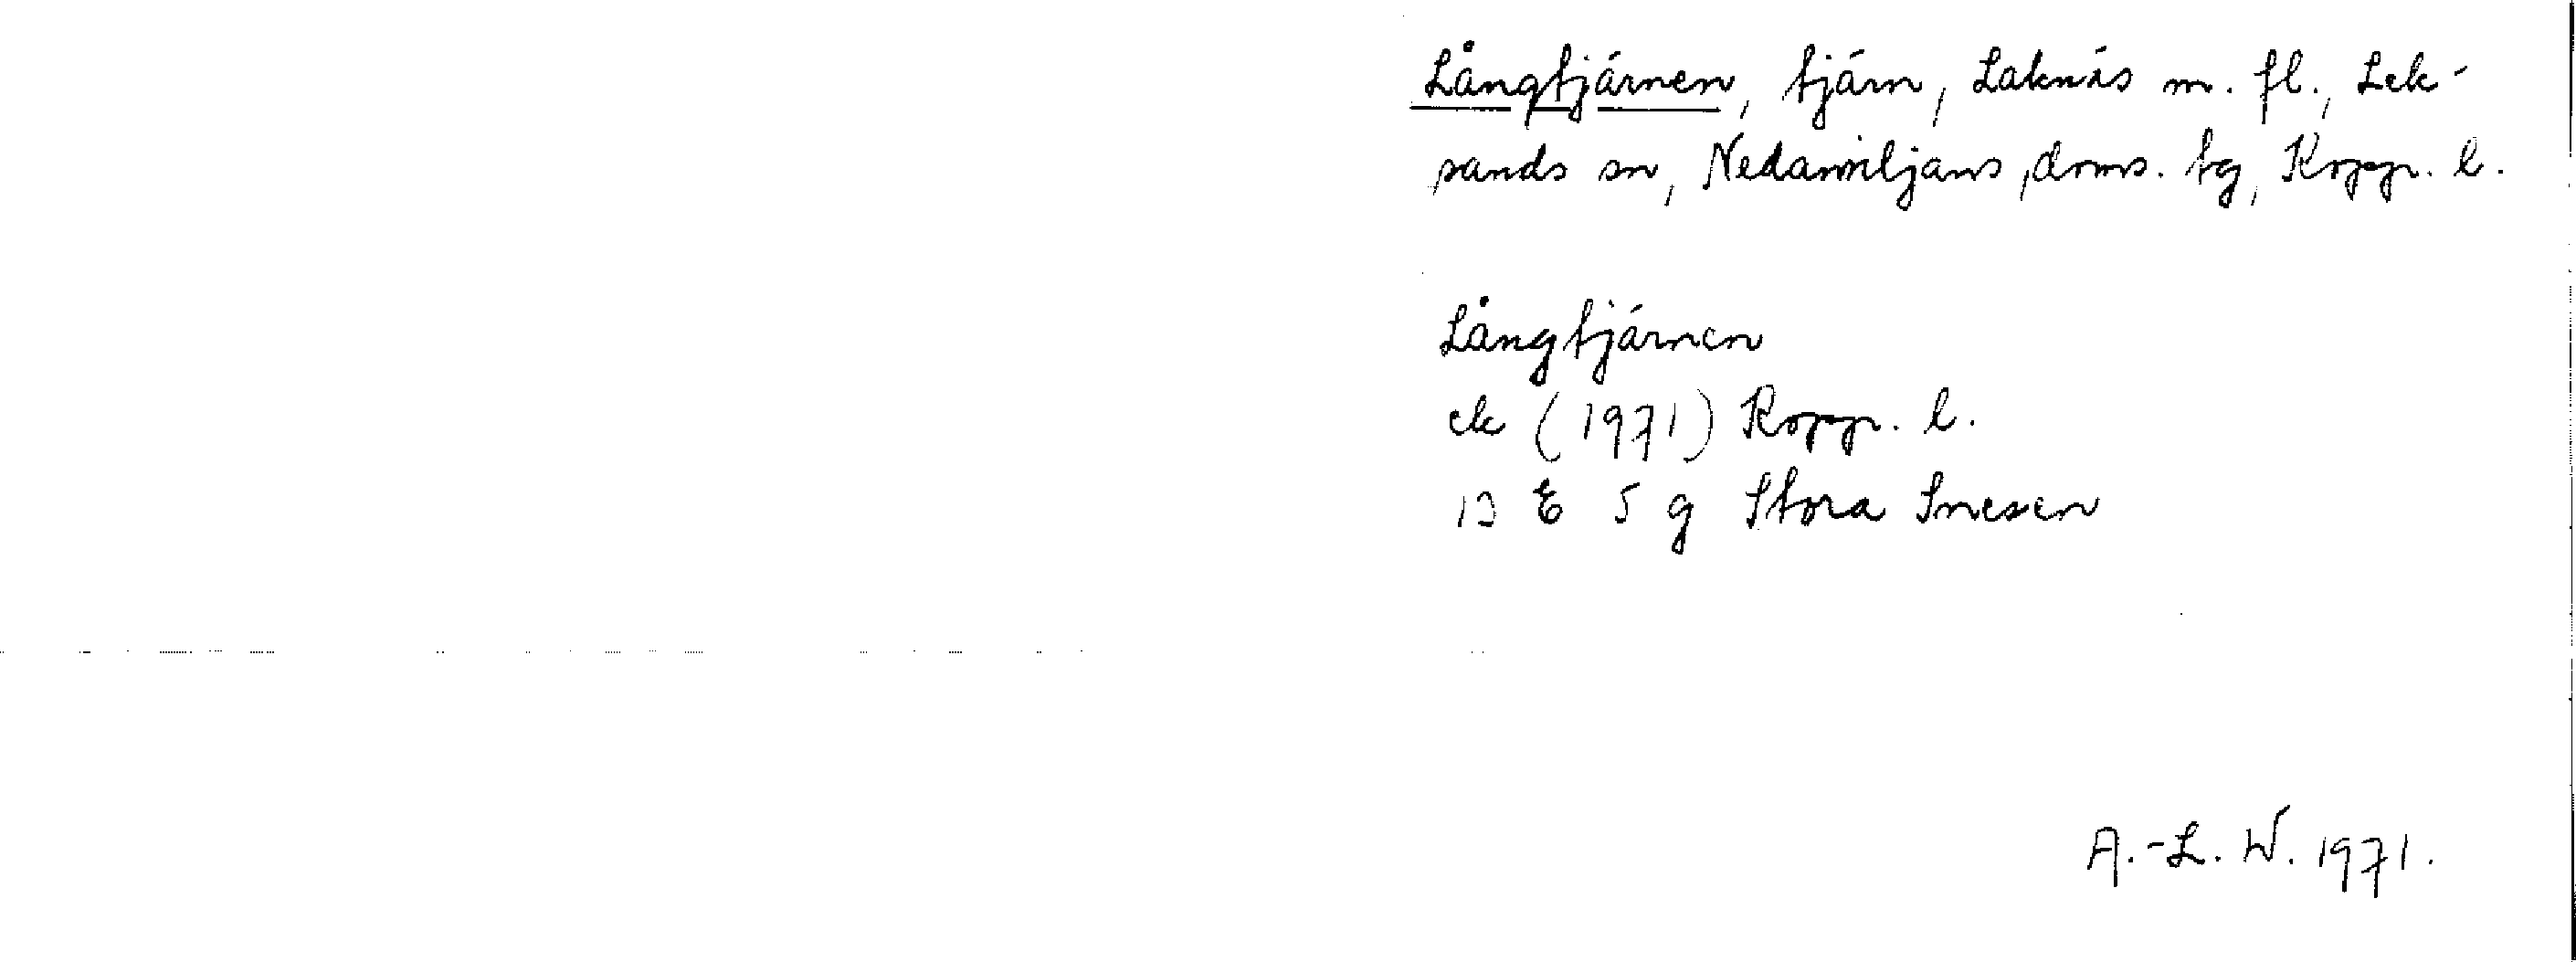 Långtjärnen, tjärn, Laknäs m. fl., Lek-
sands sn, Nedansiljans doms. tg, Kopp. l.
Långtjärnen
ek (1971) Kopp. l.
13 E 5 g Stora Snesen
A.-L. W. 1971.